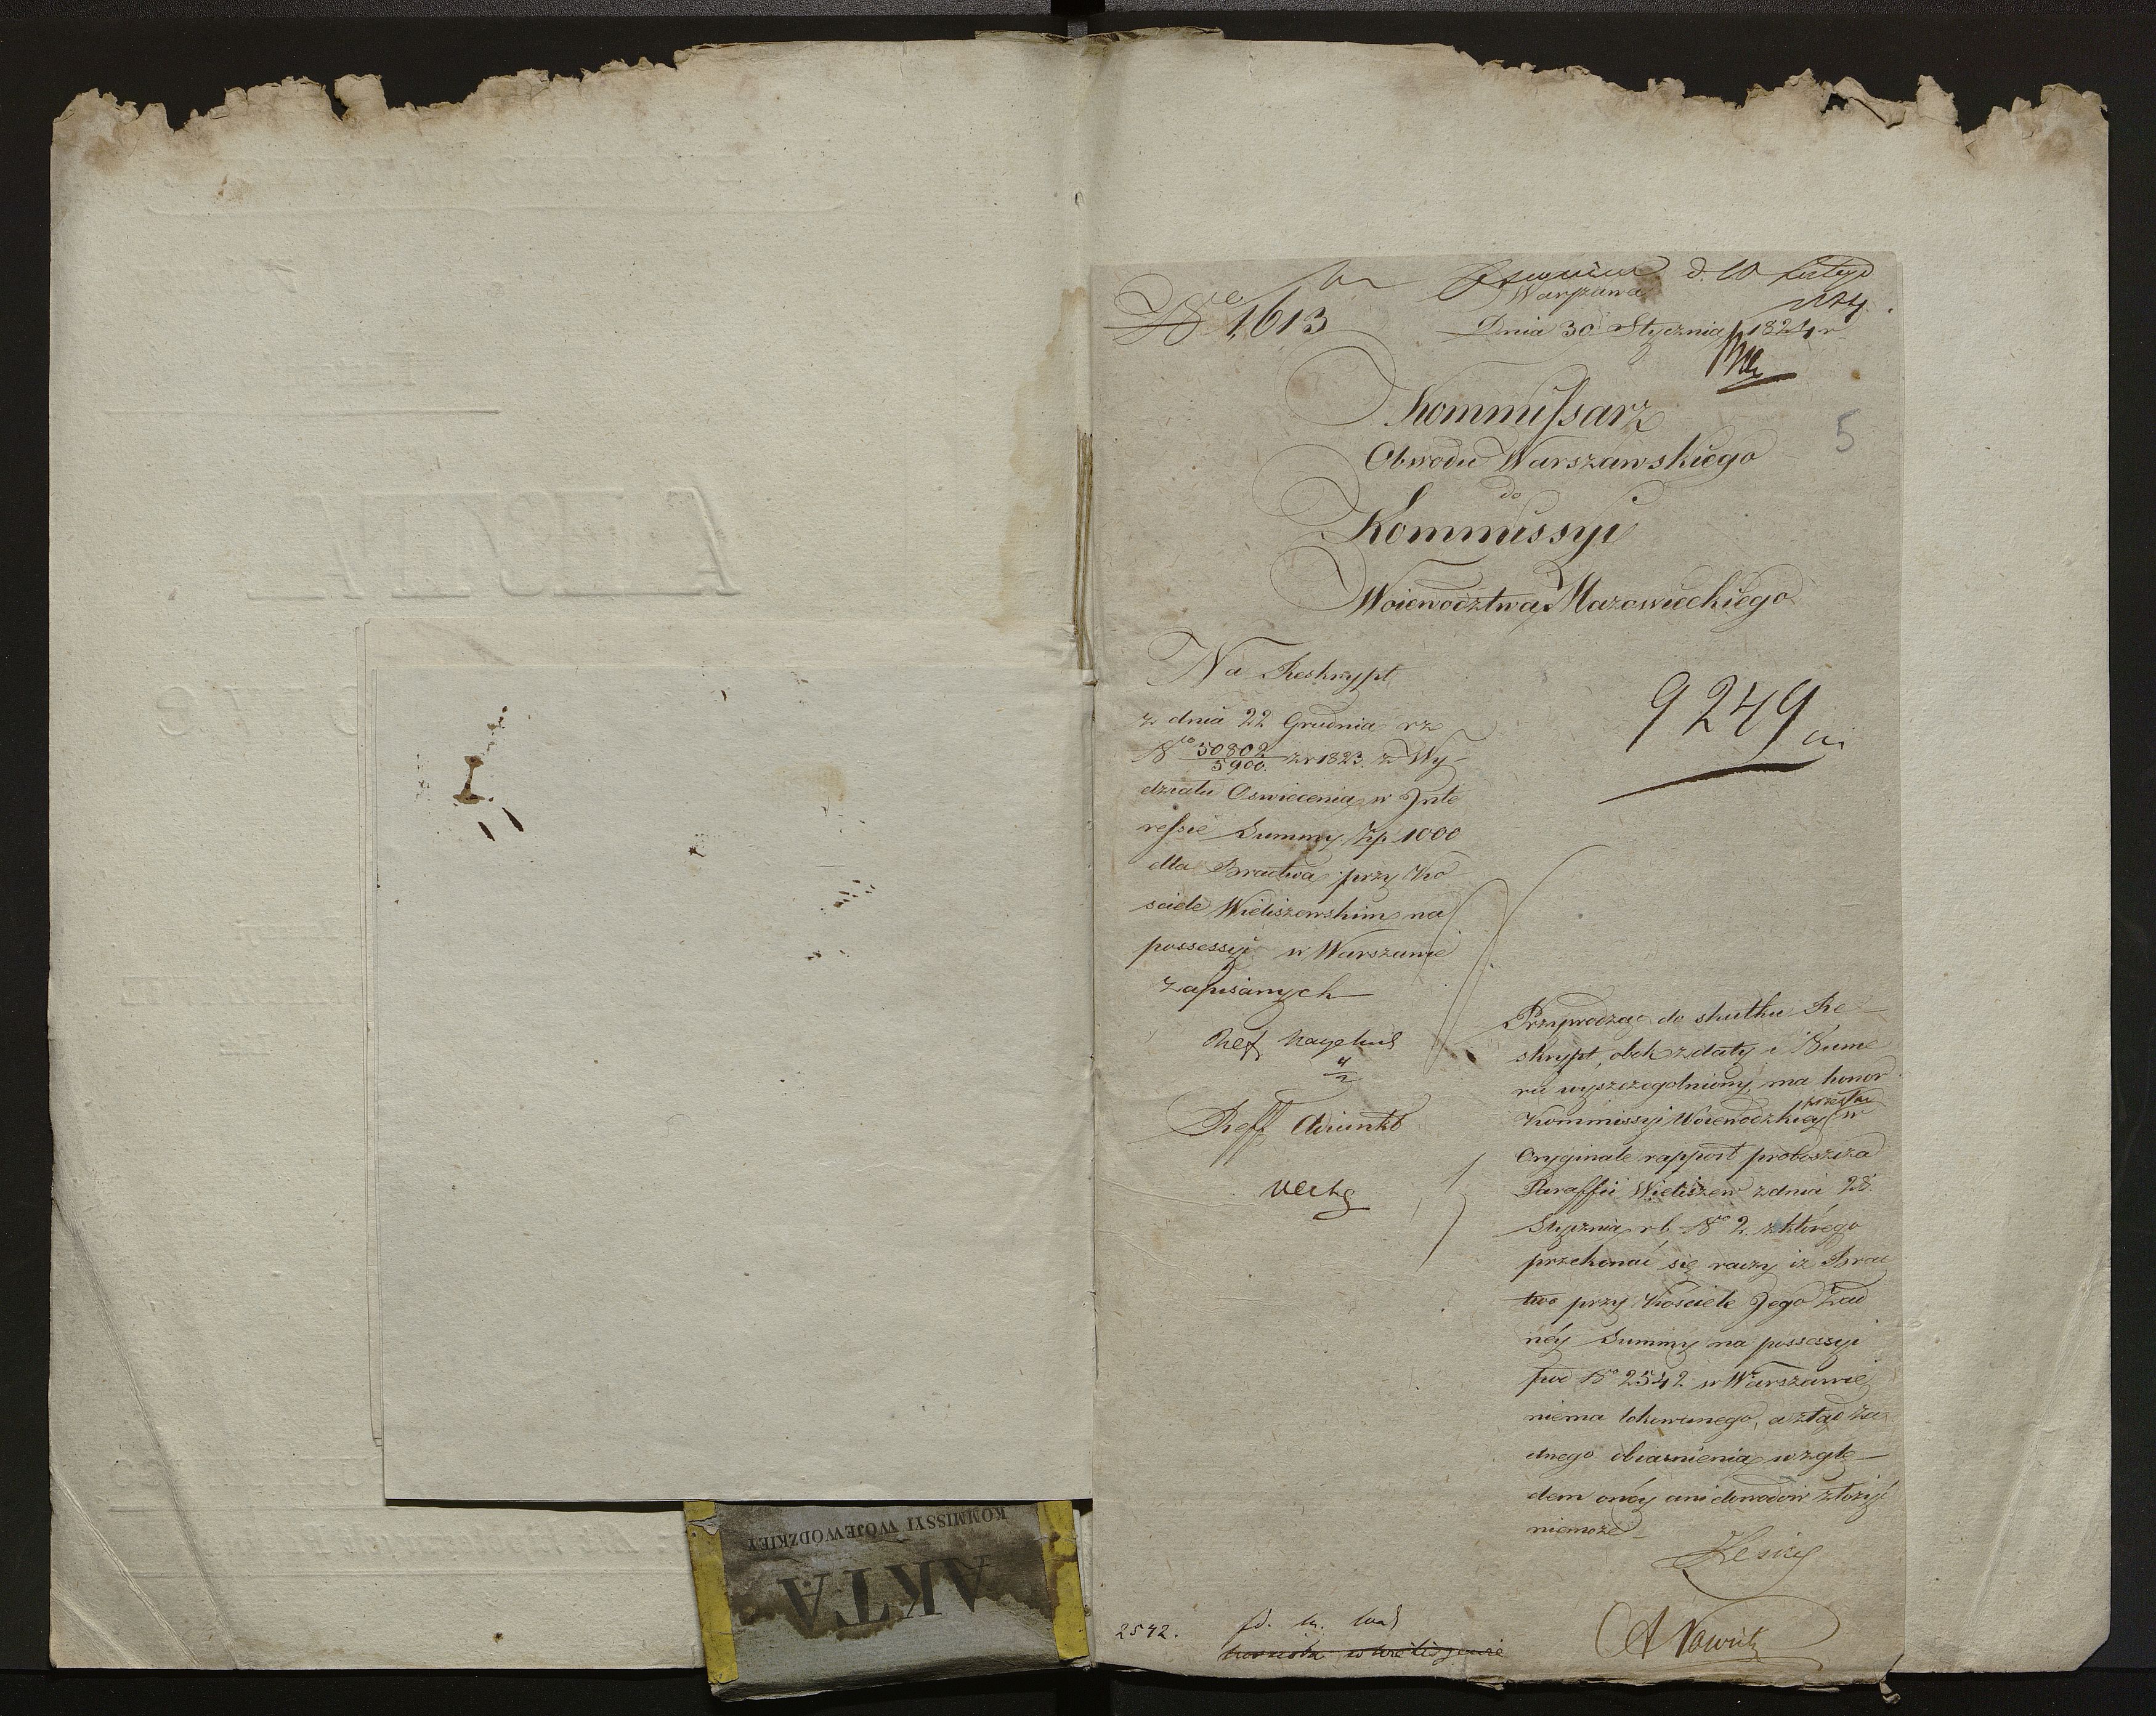 No 1,613
d. 10
Warszawa
Dnia 30 Stycznia 1824 r
5
Kommissarz
Obwodu Warszawskiego
do
Kommissyi
Woiewodztwa Mazowieckiego
Na Reskrypt
z dnia 22 Grudnia rz
No 50802/5900. z r 1823. z Wy-
działu Oswiecenia w Inte
ressie Summy Złp 1000
dla Bractwa przy Ko
sciele Wieliszewskim na
possessyi w Warszawie
zapisanych
9249
Ref
Reff Adiunkt
Przywodząc do skutku Re-
skrypt, obok z daty i Nume
ru wyszczegolniony, ma honor
Kommissyi Woiewodzkiey przesłać w
Oryginale rapport proboszcza
Paraffii Wieliszew z dnia 28
Stycznia r b. No 2. z którego
przekonać się raczy iż Brac
two przy Kościele Jego żad
néy Summy na possessyi
pod No 2542 w Warszawie
niema lokowanego, a ztąd ża
dnego obiasnienia wzglę-
dem onéy ani dowodów złożyć
niemoże
2542.
KOMMISSYI WOJEWODZKIEY
AKTA